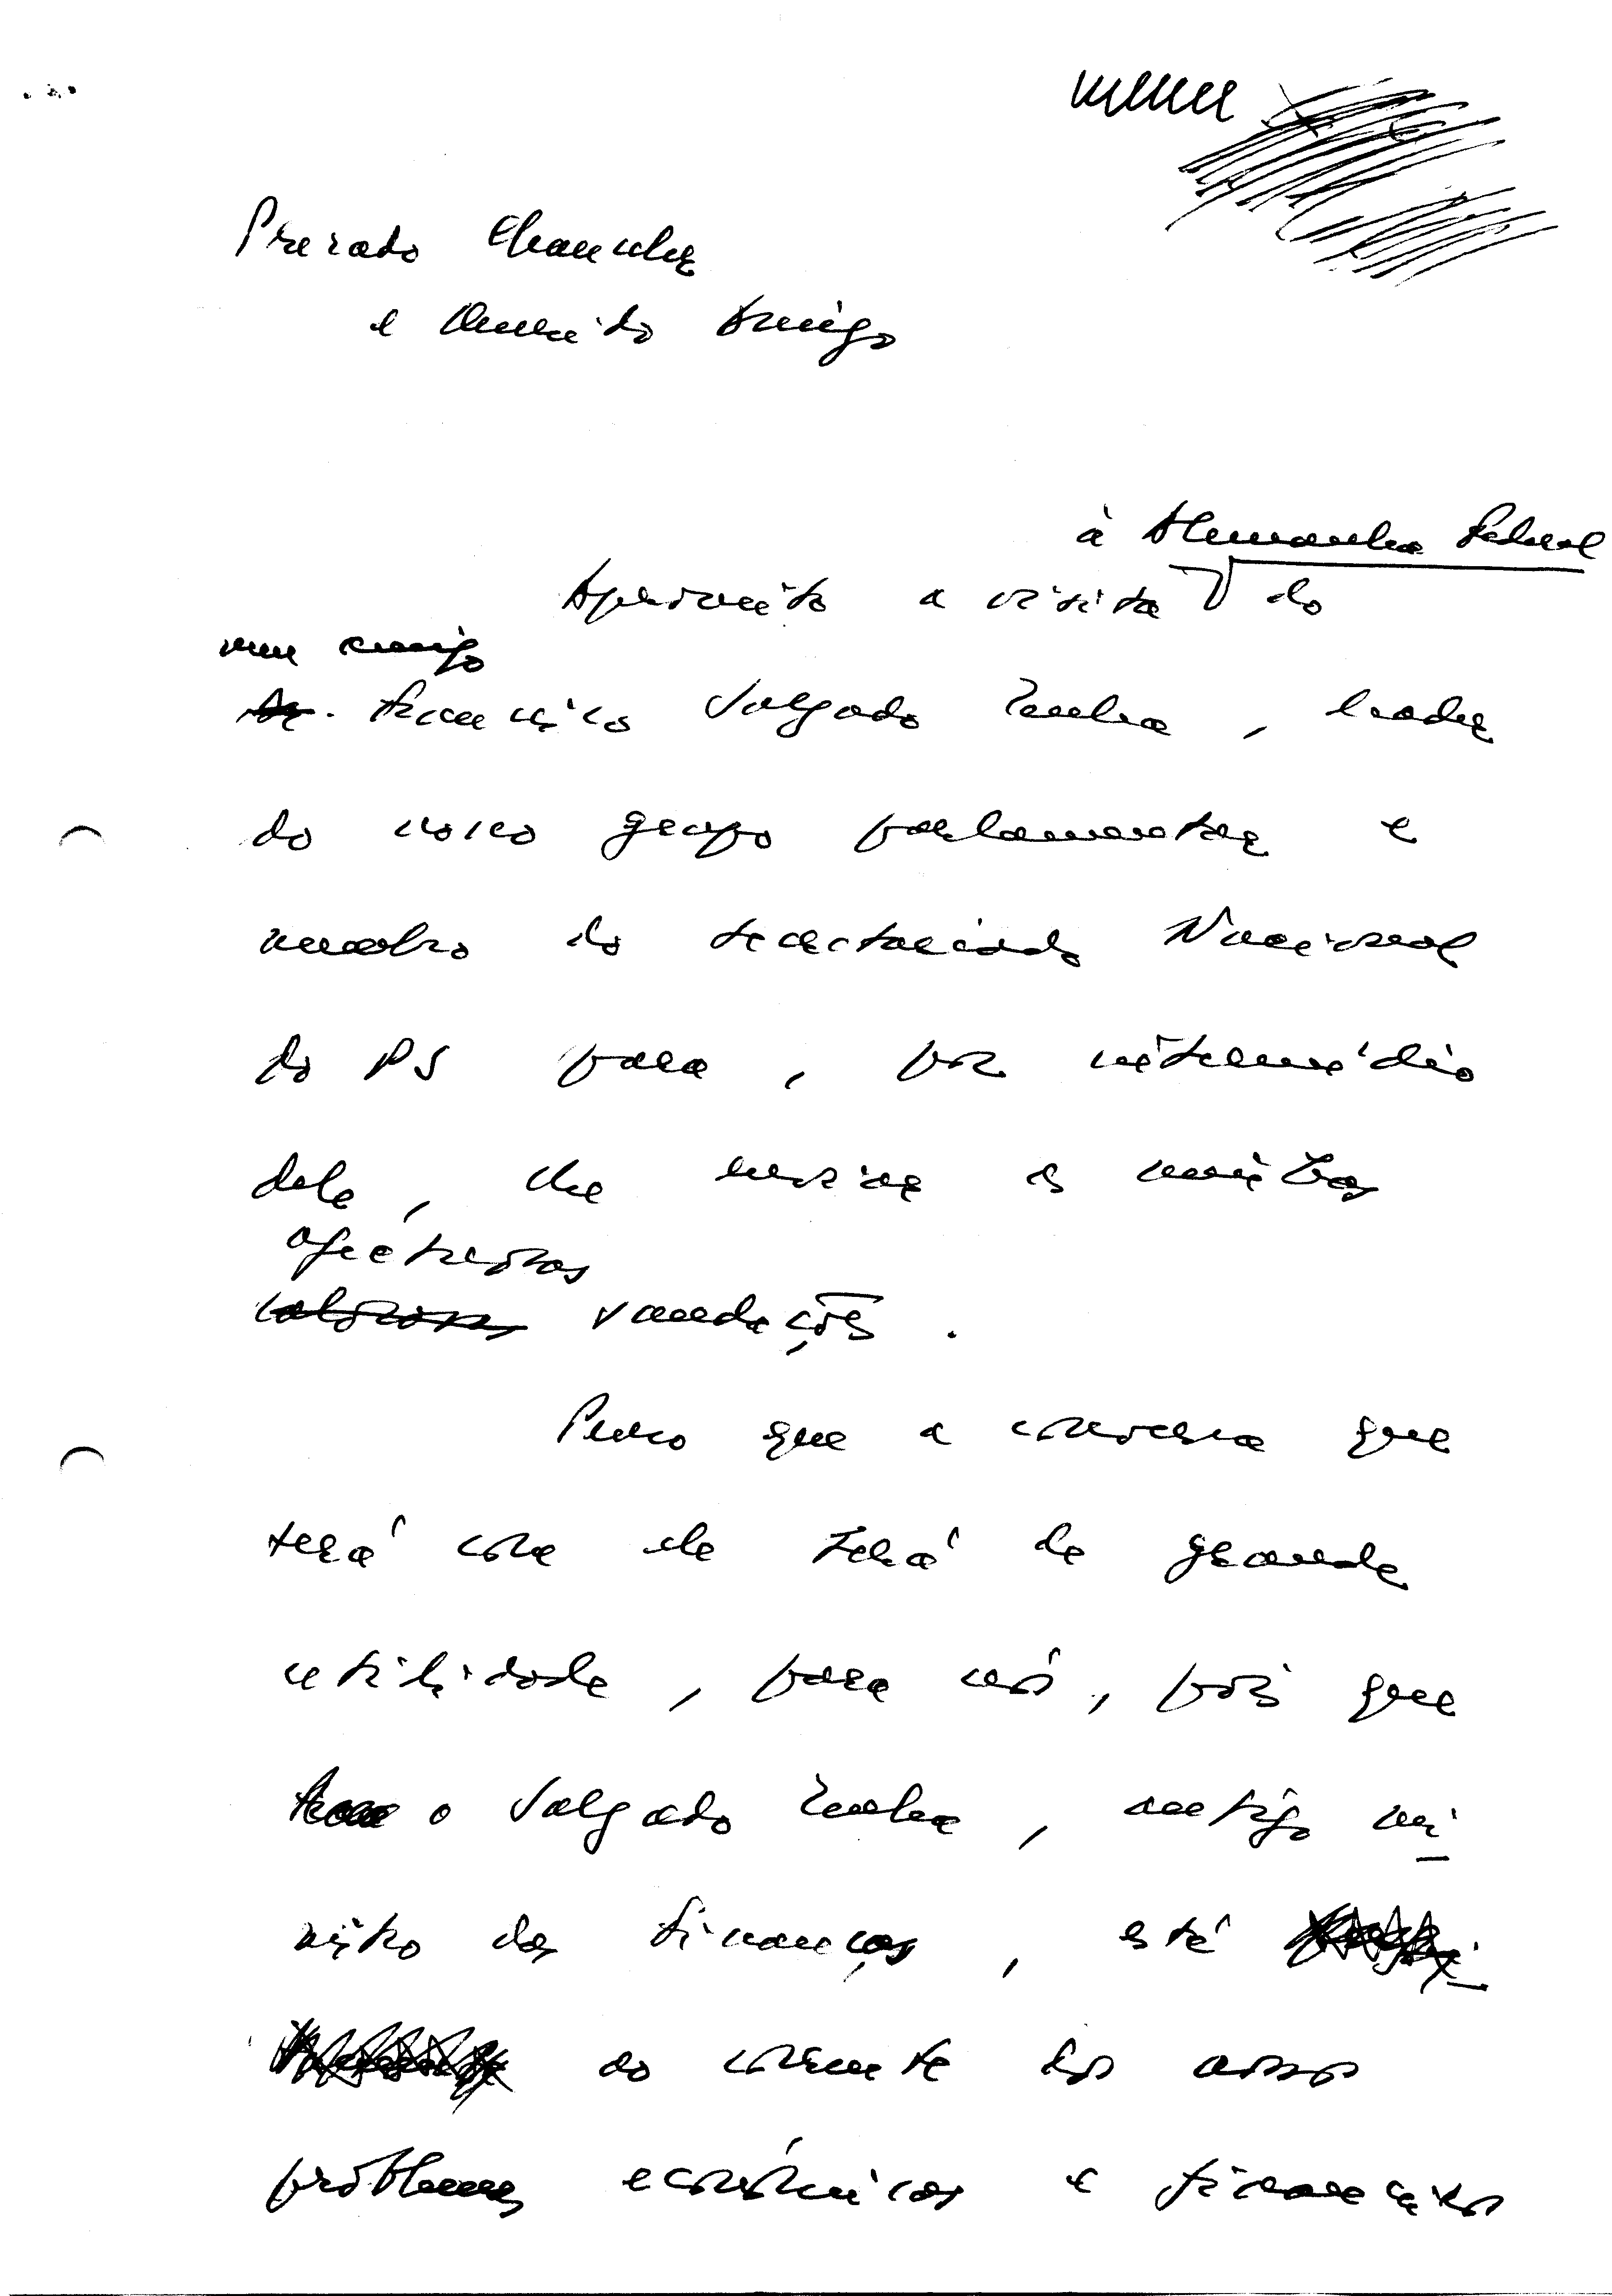 Prezado Chanceler
e Querido Amigo
à Alemanha Federal
Aproveito a visita do
meu amigo
Francisco Salgado Zenha, leader
do nosso grupo parlamentar e
membro do Secretariado Nacional
do PS para, por intermédio
dele, lhe enviar as minhas
afectuosas
calorosas saudações.
Penso que a conversa que
terá com ele será de grande
utilidade, para nós, pois que
o Salgado Zenha, antigo mi
nistro das Finanças, está
ao corrente dos nossos
problemas económicos e financeiros